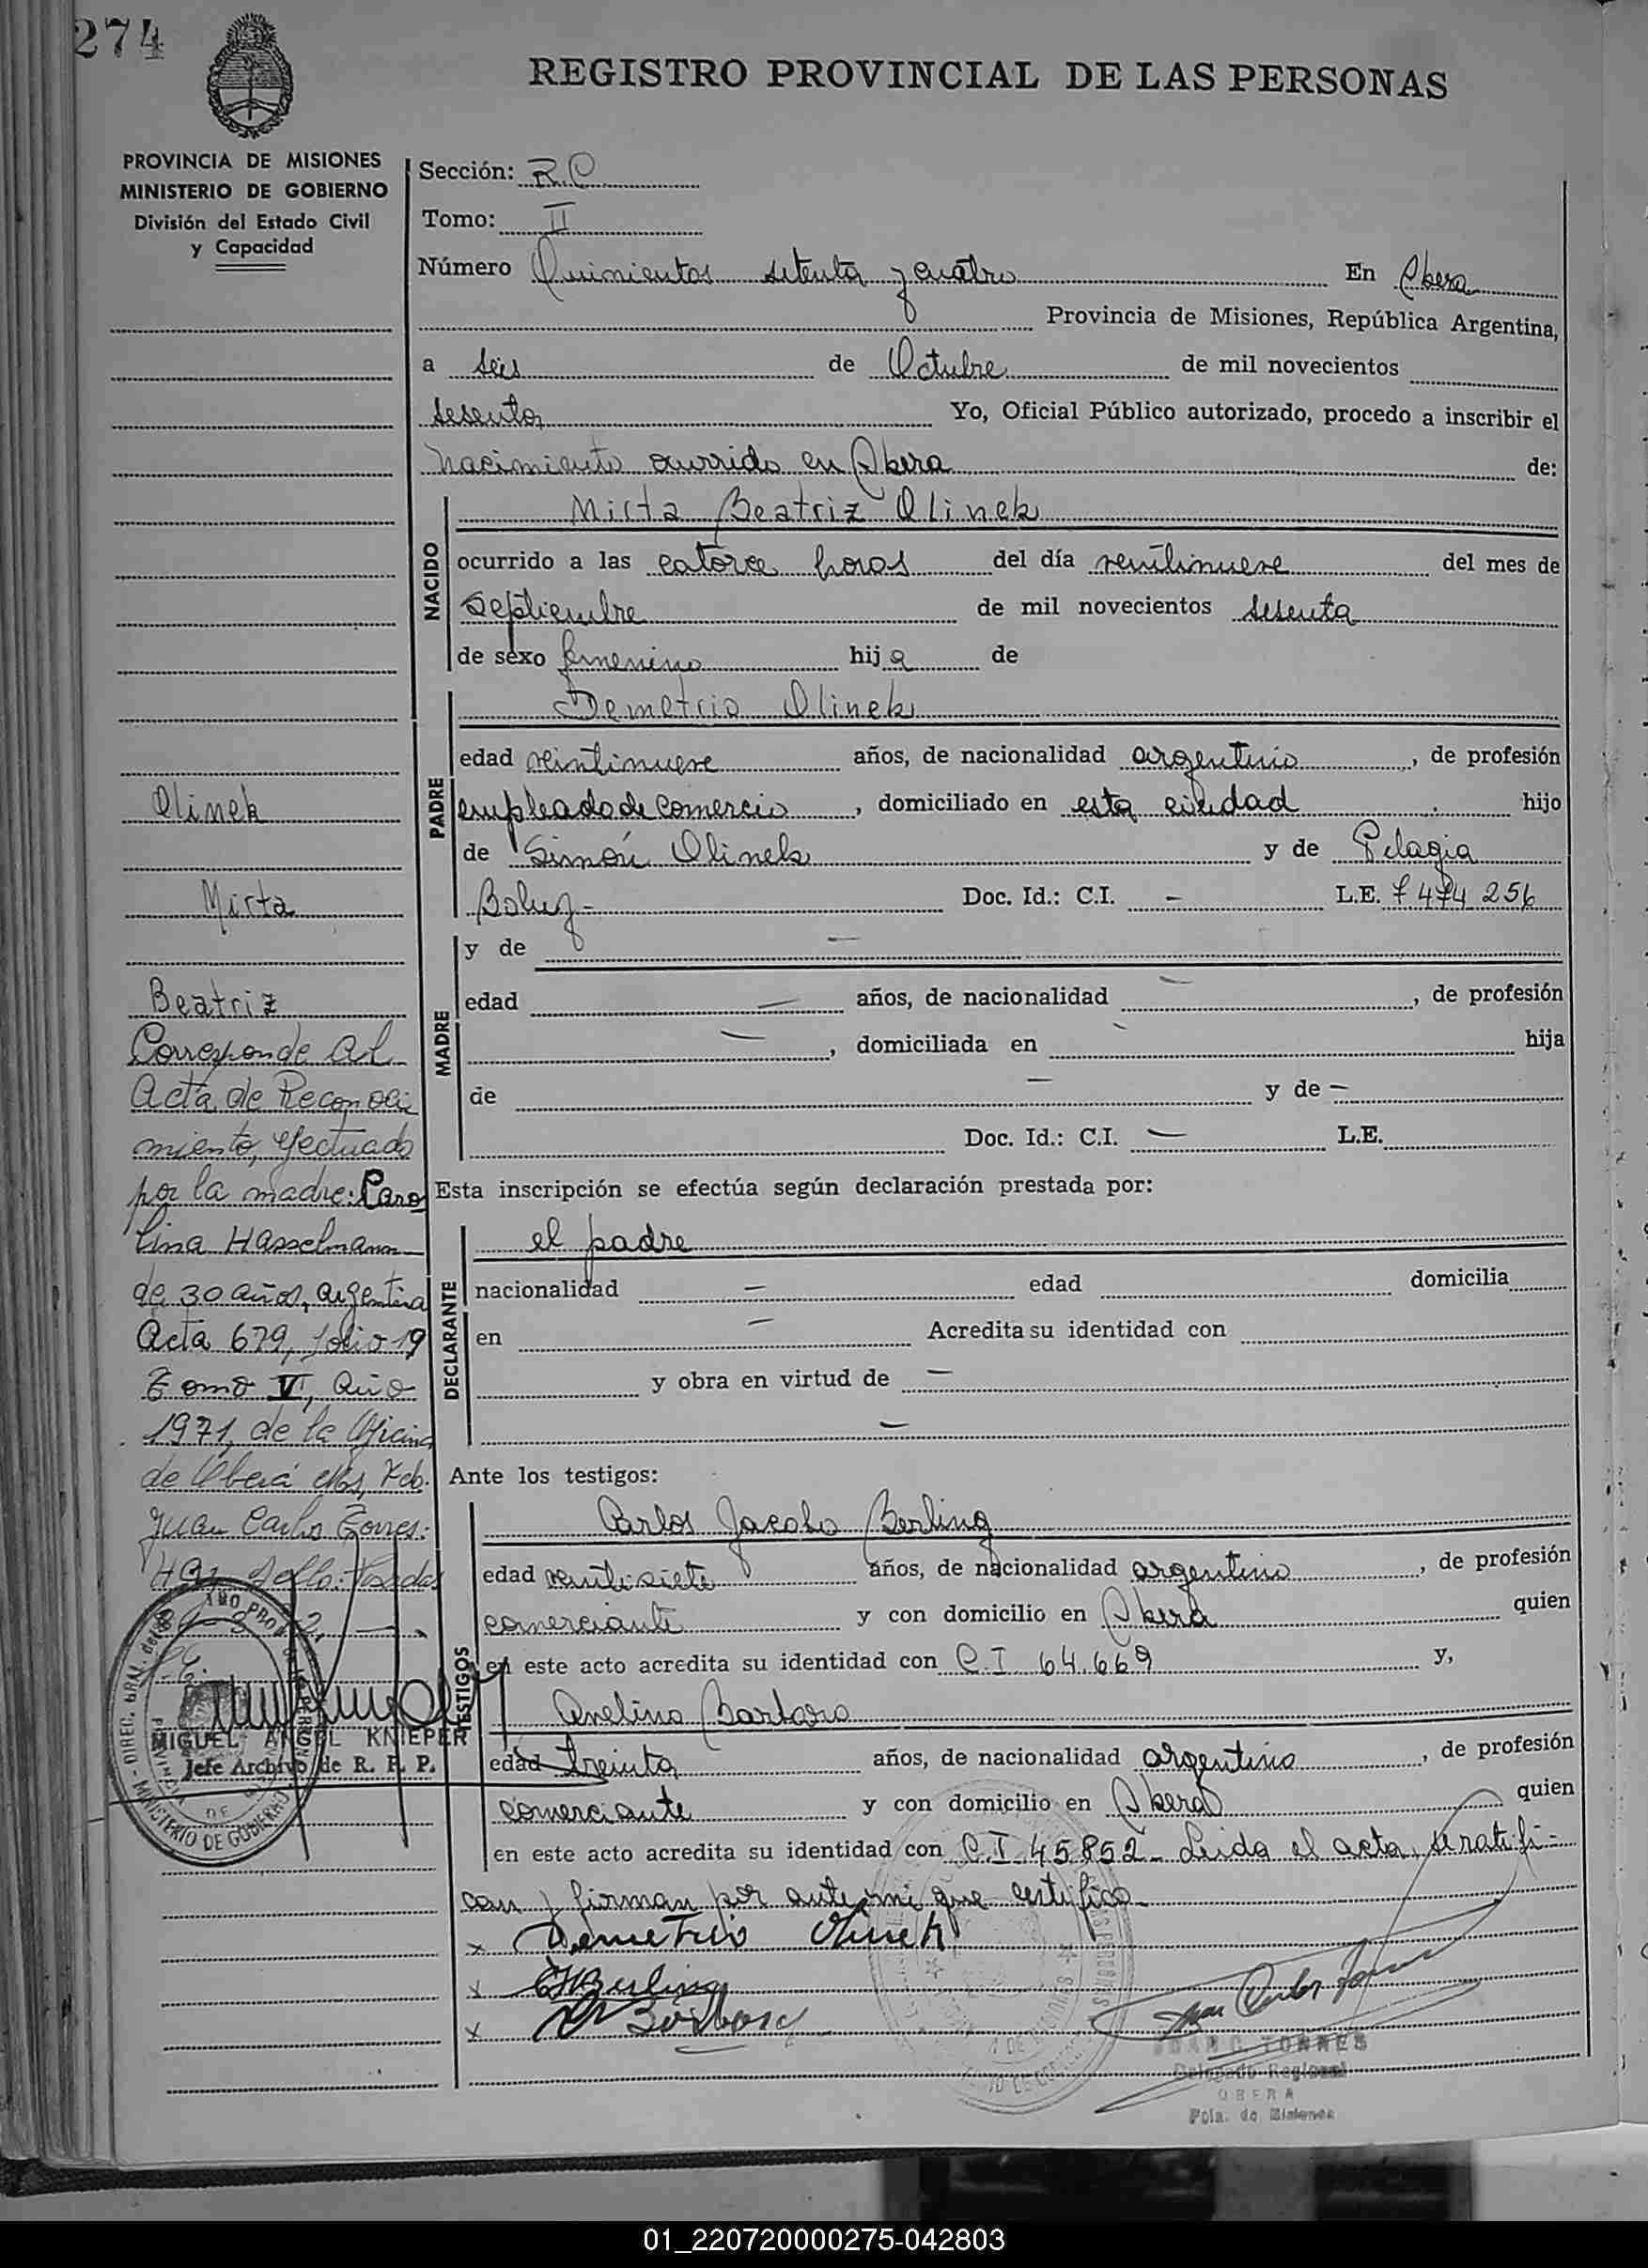 274
REGISTRO PROVINCIAL DE LAS PERSONAS
PROVINCIA DE MISIONES
MINISTERIO DE GOBIERNO
División del Estado Civil
y Capacidad
Sección: R.C.
Tomo: II
Número Quinientos setenta y cuatro En Obera
Provincia de Misiones, República Argentina,
a seis de Octubre de mil novecientos
sesenta Yo, Oficial Público autorizado, procedo a inscribir el
nacimiento ocurrido en Obera de:
NACIDO
Mirta Beatriz Olinek
ocurrido a las catorce horas del día veintinueve del mes de
Septiembre de mil novecientos sesenta
de sexo femenino hija de
PADRE
Demetrio Olinek
edad veintinueve años, de nacionalidad argentino, de profesión
empleado de comercio, domiciliado en esta ciudad hijo
de Simón Olinek y de Pelagia
Doc. Id.: C.I. — L.E. 7474256
MADRE
y de —
edad — años, de nacionalidad —, de profesión
—, domiciliada en hija
de — y de —
Doc. Id.: C.I. — L.E.
Esta inscripción se efectúa según declaración prestada por:
DECLARANTE
el padre
nacionalidad — edad domicilia
en — Acredita su identidad con
y obra en virtud de —
—
Ante los testigos:
TESTIGOS
Carlos Jacobo Berling
edad veintisiete años, de nacionalidad argentino, de profesión
comerciante y con domicilio en Obera quien
en este acto acredita su identidad con C.I. 64.669 y,
Avelino Barbaro
edad treinta años, de nacionalidad argentino, de profesión
comerciante y con domicilio en Obera quien
en este acto acredita su identidad con C.I. 45852 - Leida el acta, se ratifi-
can y firman por ante mi que certifico
x Demetrio Olinek
x Berling
x
Juan Carlos Torres
JUAN C. TORRES
Delegado Regional
OBERA
Pcia. de Misiones
Olinek
Mirta
Beatriz
Corresponde al
Acta de Reconoci
miento, efectuado
por la madre: Caro
lina Hasselmann
de 30 años, argentina
Acta 679, folio 19
Tomo VI, Año
1971, de la Oficina
de Oberá Mis, Fdo.
Juan Carlos Torres:
MIGUEL ANGEL KNIEPER
Jefe Archivo de R. P. P.
DIREC. GRAL. del
MINISTERIO DE GOBIERNO
01_220720000275-042803